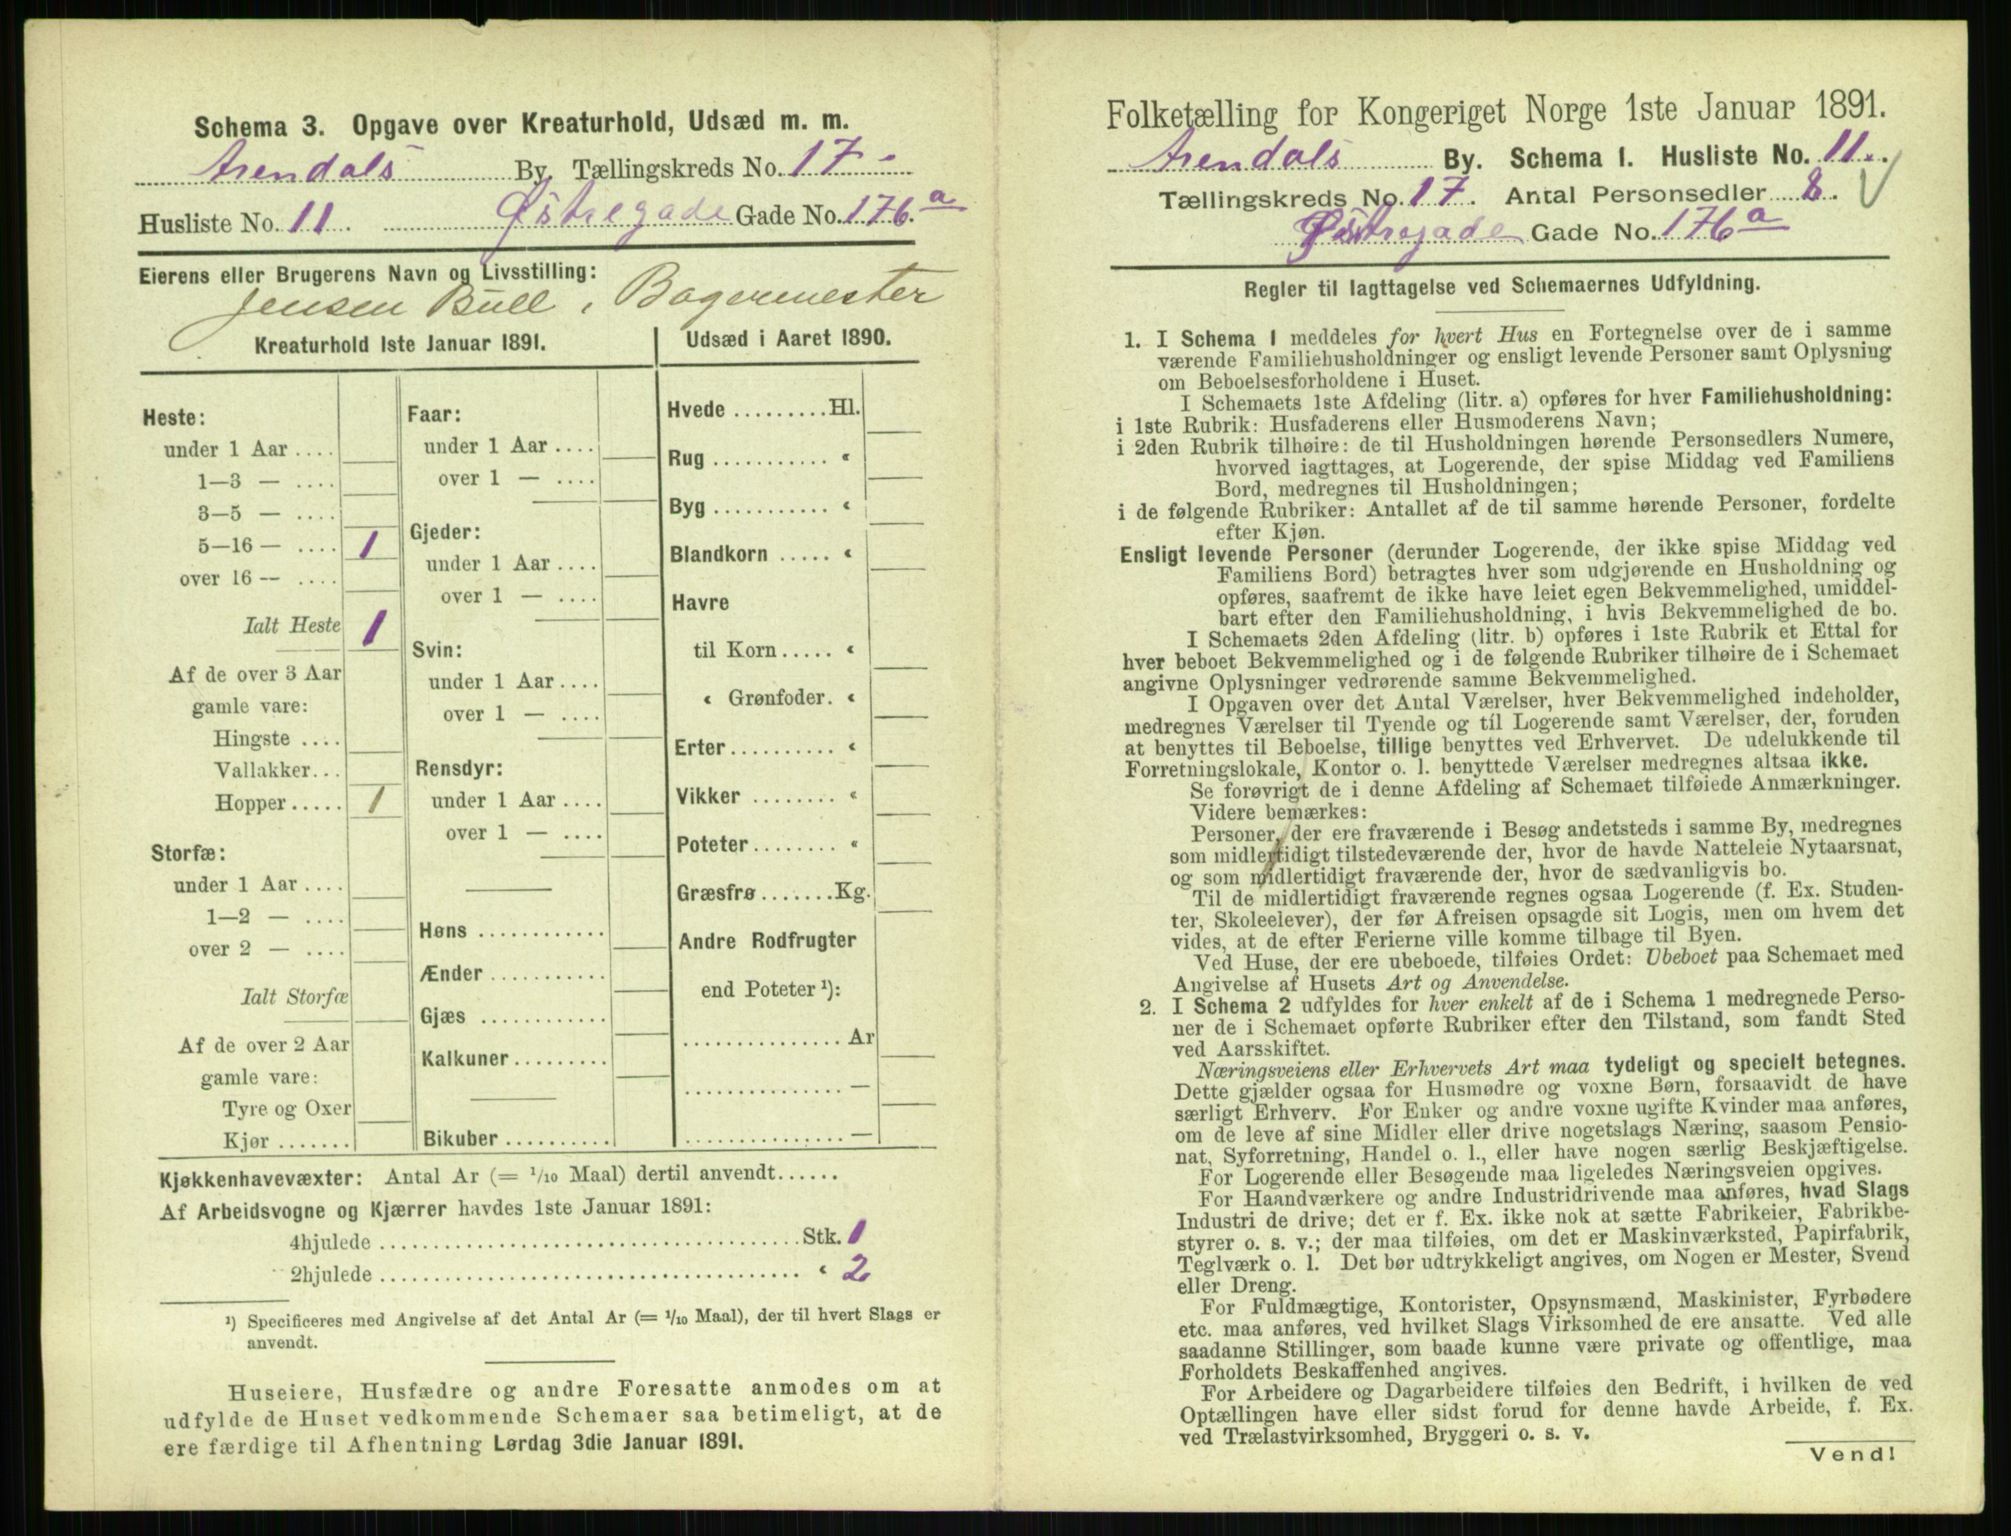 Schema 3. Opgave over Kreaturhold, Udsæd m. m.
Arendals By. Tællingskreds No. 17.
Husliste No. 11. Østregade Gade No. 176.a
Eierens eller Brugerens Navn og Livsstilling:
Jensen Bull, Bagermester
Kreaturhold 1ste Januar 1891.
Heste:
under 1 Aar ....
1—3 — ....
3—5 — ....
5—16 — .... 1
over 16 — ....
Ialt Heste 1
Af de over 3 Aar
gamle vare:
Hingste ....
Vallakker...
Hopper..... 1
Storfæ:
under 1 Aar ....
1—2 — ....
over 2 — ....
Ialt Storfæ
Af de over 2 Aar
gamle vare:
Tyre og Oxer
Kjør .......
Faar:
under 1 Aar ....
over 1 — ....
Gjeder:
under 1 Aar ....
over 1 — ....
Svin:
under 1 Aar ....
over 1 — ....
Rensdyr:
under 1 Aar ....
over 1 — ....
Høns ............
Ænder ...........
Gjæs ............
Kalkuner.........
Bikuber..........
Udsæd i Aaret 1890.
Hvede .........Hl.
Rug ........... “
Byg ........... “
Blandkorn ..... “
Havre
til Korn..... “
“ Grønfoder. “
Erter.......... “
Vikker ........ “
Poteter........ “
Græsfrø.......Kg.
Andre Rodfrugter
end Poteter ¹):
...............Ar
............... —
............... —
Kjøkkenhavevæxter: Antal Ar (= 1/10 Maal) dertil anvendt......
Af Arbeidsvogne og Kjærrer havdes 1ste Januar 1891:
4hjulede ........................................Stk. 1
2hjulede ........................................ “ 2
¹) Specificeres med Angivelse af det Antal Ar (= 1/10 Maal), der til hvert Slags er
anvendt.
Huseiere, Husfædre og andre Foresatte anmodes om at
udfylde de Huset vedkommende Schemaer saa betimeligt, at de
ere færdige til Afhentning Lørdag 3die Januar 1891.
Folketælling for Kongeriget Norge 1ste Januar 1891.
Arendals By. Schema 1. Husliste No. 11.
Tællingskreds No. 17. Antal Personsedler 8.
Østregade Gade No. 176a
Regler til Iagttagelse ved Schemaernes Udfyldning.
1. I Schema 1 meddeles for hvert Hus en Fortegnelse over de i samme
værende Familiehusholdninger og ensligt levende Personer samt Oplysning
om Beboelsesforholdene i Huset.
I Schemaets 1ste Afdeling (litr. a) opføres for hver Familiehusholdning:
i 1ste Rubrik: Husfaderens eller Husmoderens Navn;
i 2den Rubrik tilhøire: de til Husholdningen hørende Personsedlers Numere,
hvorved iagttages, at Logerende, der spise Middag ved Familiens
Bord, medregnes til Husholdningen;
i de følgende Rubriker: Antallet af de til samme hørende Personer, fordelte
efter Kjøn.
Ensligt levende Personer (derunder Logerende, der ikke spise Middag ved
Familiens Bord) betragtes hver som udgjørende en Husholdning og
opføres, saafremt de ikke have leiet egen Bekvemmelighed, umiddel-
bart efter den Familiehusholdning, i hvis Bekvemmelighed de bo.
I Schemaets 2den Afdeling (litr. b) opføres i 1ste Rubrik et Ettal for
hver beboet Bekvemmelighed og i de følgende Rubriker tilhøire de i Schemaet
angivne Oplysninger vedrørende samme Bekvemmelighed.
I Opgaven over det Antal Værelser, hver Bekvemmelighed indeholder,
medregnes Værelser til Tyende og til Logerende samt Værelser, der, foruden
at benyttes til Beboelse, tillige benyttes ved Erhvervet. De udelukkende til
Forretningslokale, Kontor o. l. benyttede Værelser medregnes altsaa ikke.
Se forøvrigt de i denne Afdeling af Schemaet tilføiede Anmærkninger.
Videre bemærkes:
Personer, der ere fraværende i Besøg andetsteds i samme By, medregnes
som midlertidigt tilstedeværende der, hvor de havde Natteleie Nytaarsnat,
og som midlertidigt fraværende der, hvor de sædvanligvis bo.
Til de midlertidigt fraværende regnes ogsaa Logerende (f. Ex. Studen-
ter, Skoleelever), der før Afreisen opsagde sit Logis, men om hvem det
vides, at de efter Ferierne ville komme tilbage til Byen.
Ved Huse, der ere ubeboede, tilføies Ordet: Ubeboet paa Schemaet med
Angivelse af Husets Art og Anvendelse.
2. I Schema 2 udfyldes for hver enkelt af de i Schema 1 medregnede Perso-
ner de i Schemaet opførte Rubriker efter den Tilstand, som fandt Sted
ved Aarsskiftet.
Næringsveiens eller Erhvervets Art maa tydeligt og specielt betegnes.
Dette gjælder ogsaa for Husmødre og voxne Børn, forsaavidt de have
særligt Erhverv. For Enker og andre voxne ugifte Kvinder maa anføres,
om de leve af sine Midler eller drive nogetslags Næring, saasom Pensio-
nat, Syforretning, Handel o. l., eller have nogen særlig Beskjæftigelse.
For Logerende eller Besøgende maa ligeledes Næringsveien opgives.
For Haandværkere og andre Industridrivende maa anføres, hvad Slags
Industri de drive; det er f. Ex. ikke nok at sætte Fabrikeier, Fabrikbe-
styrer o. s. v.; der maa tilføies, om det er Maskinværksted, Papirfabrik,
Teglværk o. l. Det bør udtrykkeligt angives, om Nogen er Mester, Svend
eller Dreng.
For Fuldmægtige, Kontorister, Opsynsmænd, Maskinister, Fyrbødere
etc. maa anføres, ved hvilket Slags Virksomhed de ere ansatte. Ved alle
saadanne Stillinger, som baade kunne være private og offentlige, maa
Forholdets Beskaffenhed angives.
For Arbeidere og Dagarbeidere tilføies den Bedrift, i hvilken de ved
Optællingen have eller sidst forud for denne havde Arbeide, f. Ex.
ved Trælastvirksomhed, Bryggeri o. s. v.
Vend!